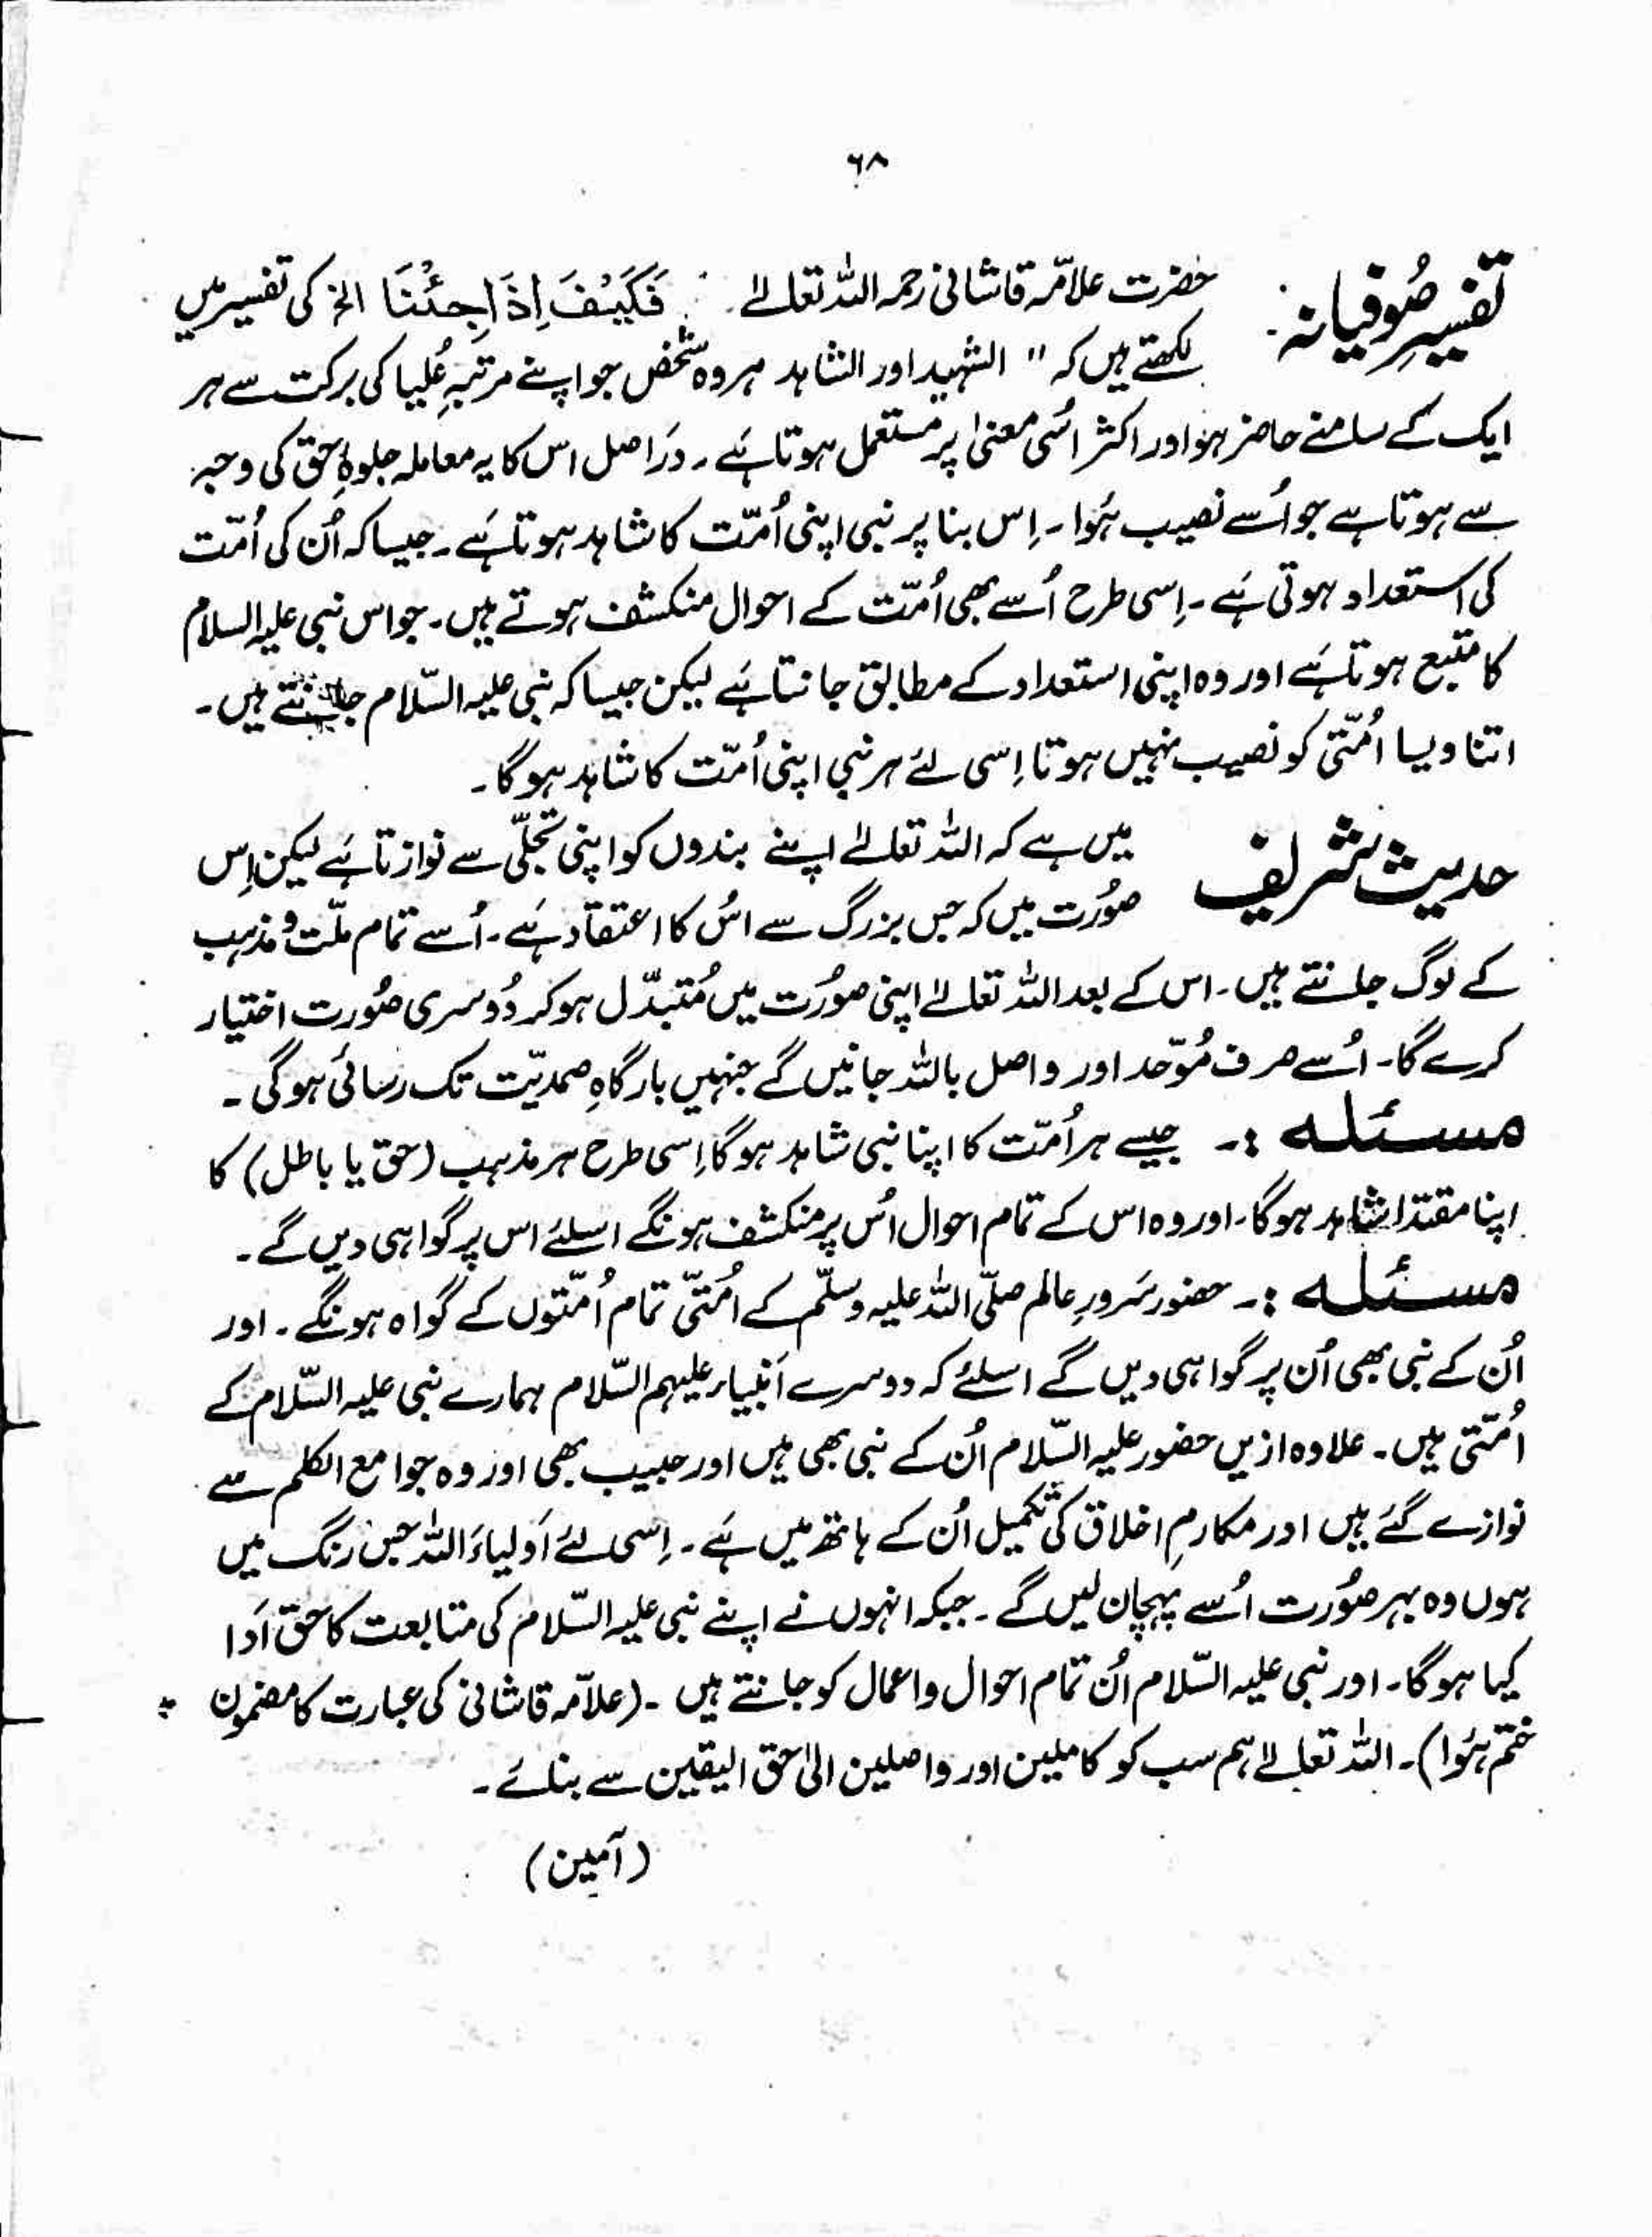 ٦٨
تفسیرِ صُوفیانہ: حضرت علامّہ قاشانی رحمہ اللہ تعالےٰ فَکَیْفَ اِذَا جِئْنَا الخ کی تفسیر میں
لکھتے ہیں کہ " الشہید اور الشاہد ہر وہ شخص جو اپنے مرتبۂِ عُلیا کی برکت سے ہر
ایک کے سامنے حاضر ہو اور اکثر اسُی معنیٰ پر مستعمل ہوتا ہَے ۔ دَراصل اس کا یہ معاملہ جلوۂِ حق کی وجہ
سے ہوتا ہے جو اُسے نصیب ہُوا ۔ اِس بنا پر نبی اپنی اُمّت کا شاہد ہوتا ہَے ۔ جیسا کہ اُن کی اُمّت
کی استعداد ہوتی ہَے ۔ اِسی طرح اُسے بھی اُمّت کے احوال منکشف ہوتے ہیں ۔ جو اس نبی علیہ السلام
کا متبع ہوتا ہَے اور وہ اپنی استعداد کے مطابق جانتا ہَے لیکن جیسا کہ نبی علیہ السّلام جانتے ہیں ۔
اتنا ویسا اُمّتی کو نصیب نہیں ہوتا اِسی لئے ہر نبی اپنی اُمّت کا شاہد ہو گا ۔
حدیث شریف میں ہے کہ اللہ تعالےٰ اپنے بندوں کو اپنی تجلّی سے نوازتا ہَے لیکن اِس
صوُرت میں کہ جس بزرگ سے اسُ کا اعتقاد ہَے ۔ اُسے تمام ملّت و مذہب
کے لوگ جانتے ہیں ۔ اس کے بعد اللہ تعالےٰ اپنی صورُت میں مُتبدّل ہو کر دُوسری صُورت اختیار
کرے گا ۔ اسُے صرف مُوّحد اور واصل باللہ جانیں گے جنہیں بارگاہِ صمدیّت تک رسائی ہو گی ۔
مسئلہ :۔ جیسے ہر اُمّت کا اپنا نبی شاہد ہو گا اِسی طرح ہر مذہب (حق یا باطل) کا
اپنا مقتدا شاہد ہو گا ۔ اور وہ اس کے تمام احوال اسُ پر منکشف ہونگے اسلئے اس پر گواہی دیں گے ۔
مسئلہ :۔ حضور سَرورِ عالم صلّی اللہ علیہ وسلّم کے اُمّتی تمام اُمّتوں کے گواہ ہونگے ۔ اور
اُن کے نبی بھی اُن پر گواہی دیں گے اسلئے کہ دوسرے اَنبیاء علیہم السّلام ہمارے نبی علیہ السّلام کے
اُمّتی ہیں ۔ علاوہ ازیں حضور علیہ السّلام انُ کے نبی بھی ہیں اور حبیب بھی اور وہ جوامع الکلم سے
نوازے گئے ہیں اور مکارمِ اخلاق کی تکمیل اُن کے ہاتھ میں ہَے ۔ اِسی لئے اَولیاءَ اللہ جس رنگ میں
ہوں وہ بہر صُورت اُسے پہچان لیں گے ۔ جبکہ انہوں نے اپنے نبی علیہ السّلام کی متابعت کا حق اَدا
کیا ہو گا ۔ اور نبی علیہ السّلام اُن تمام احوال و اعمال کو جانتے ہیں ۔ (علاّمہ قاشانی کی عبارت کا مضمون
ختم ہُوا) ۔ اللہ تعالےٰ ہم سب کو کاملین اور واصلین الیٰ حق الیقین سے بنائے ۔
(آمین)